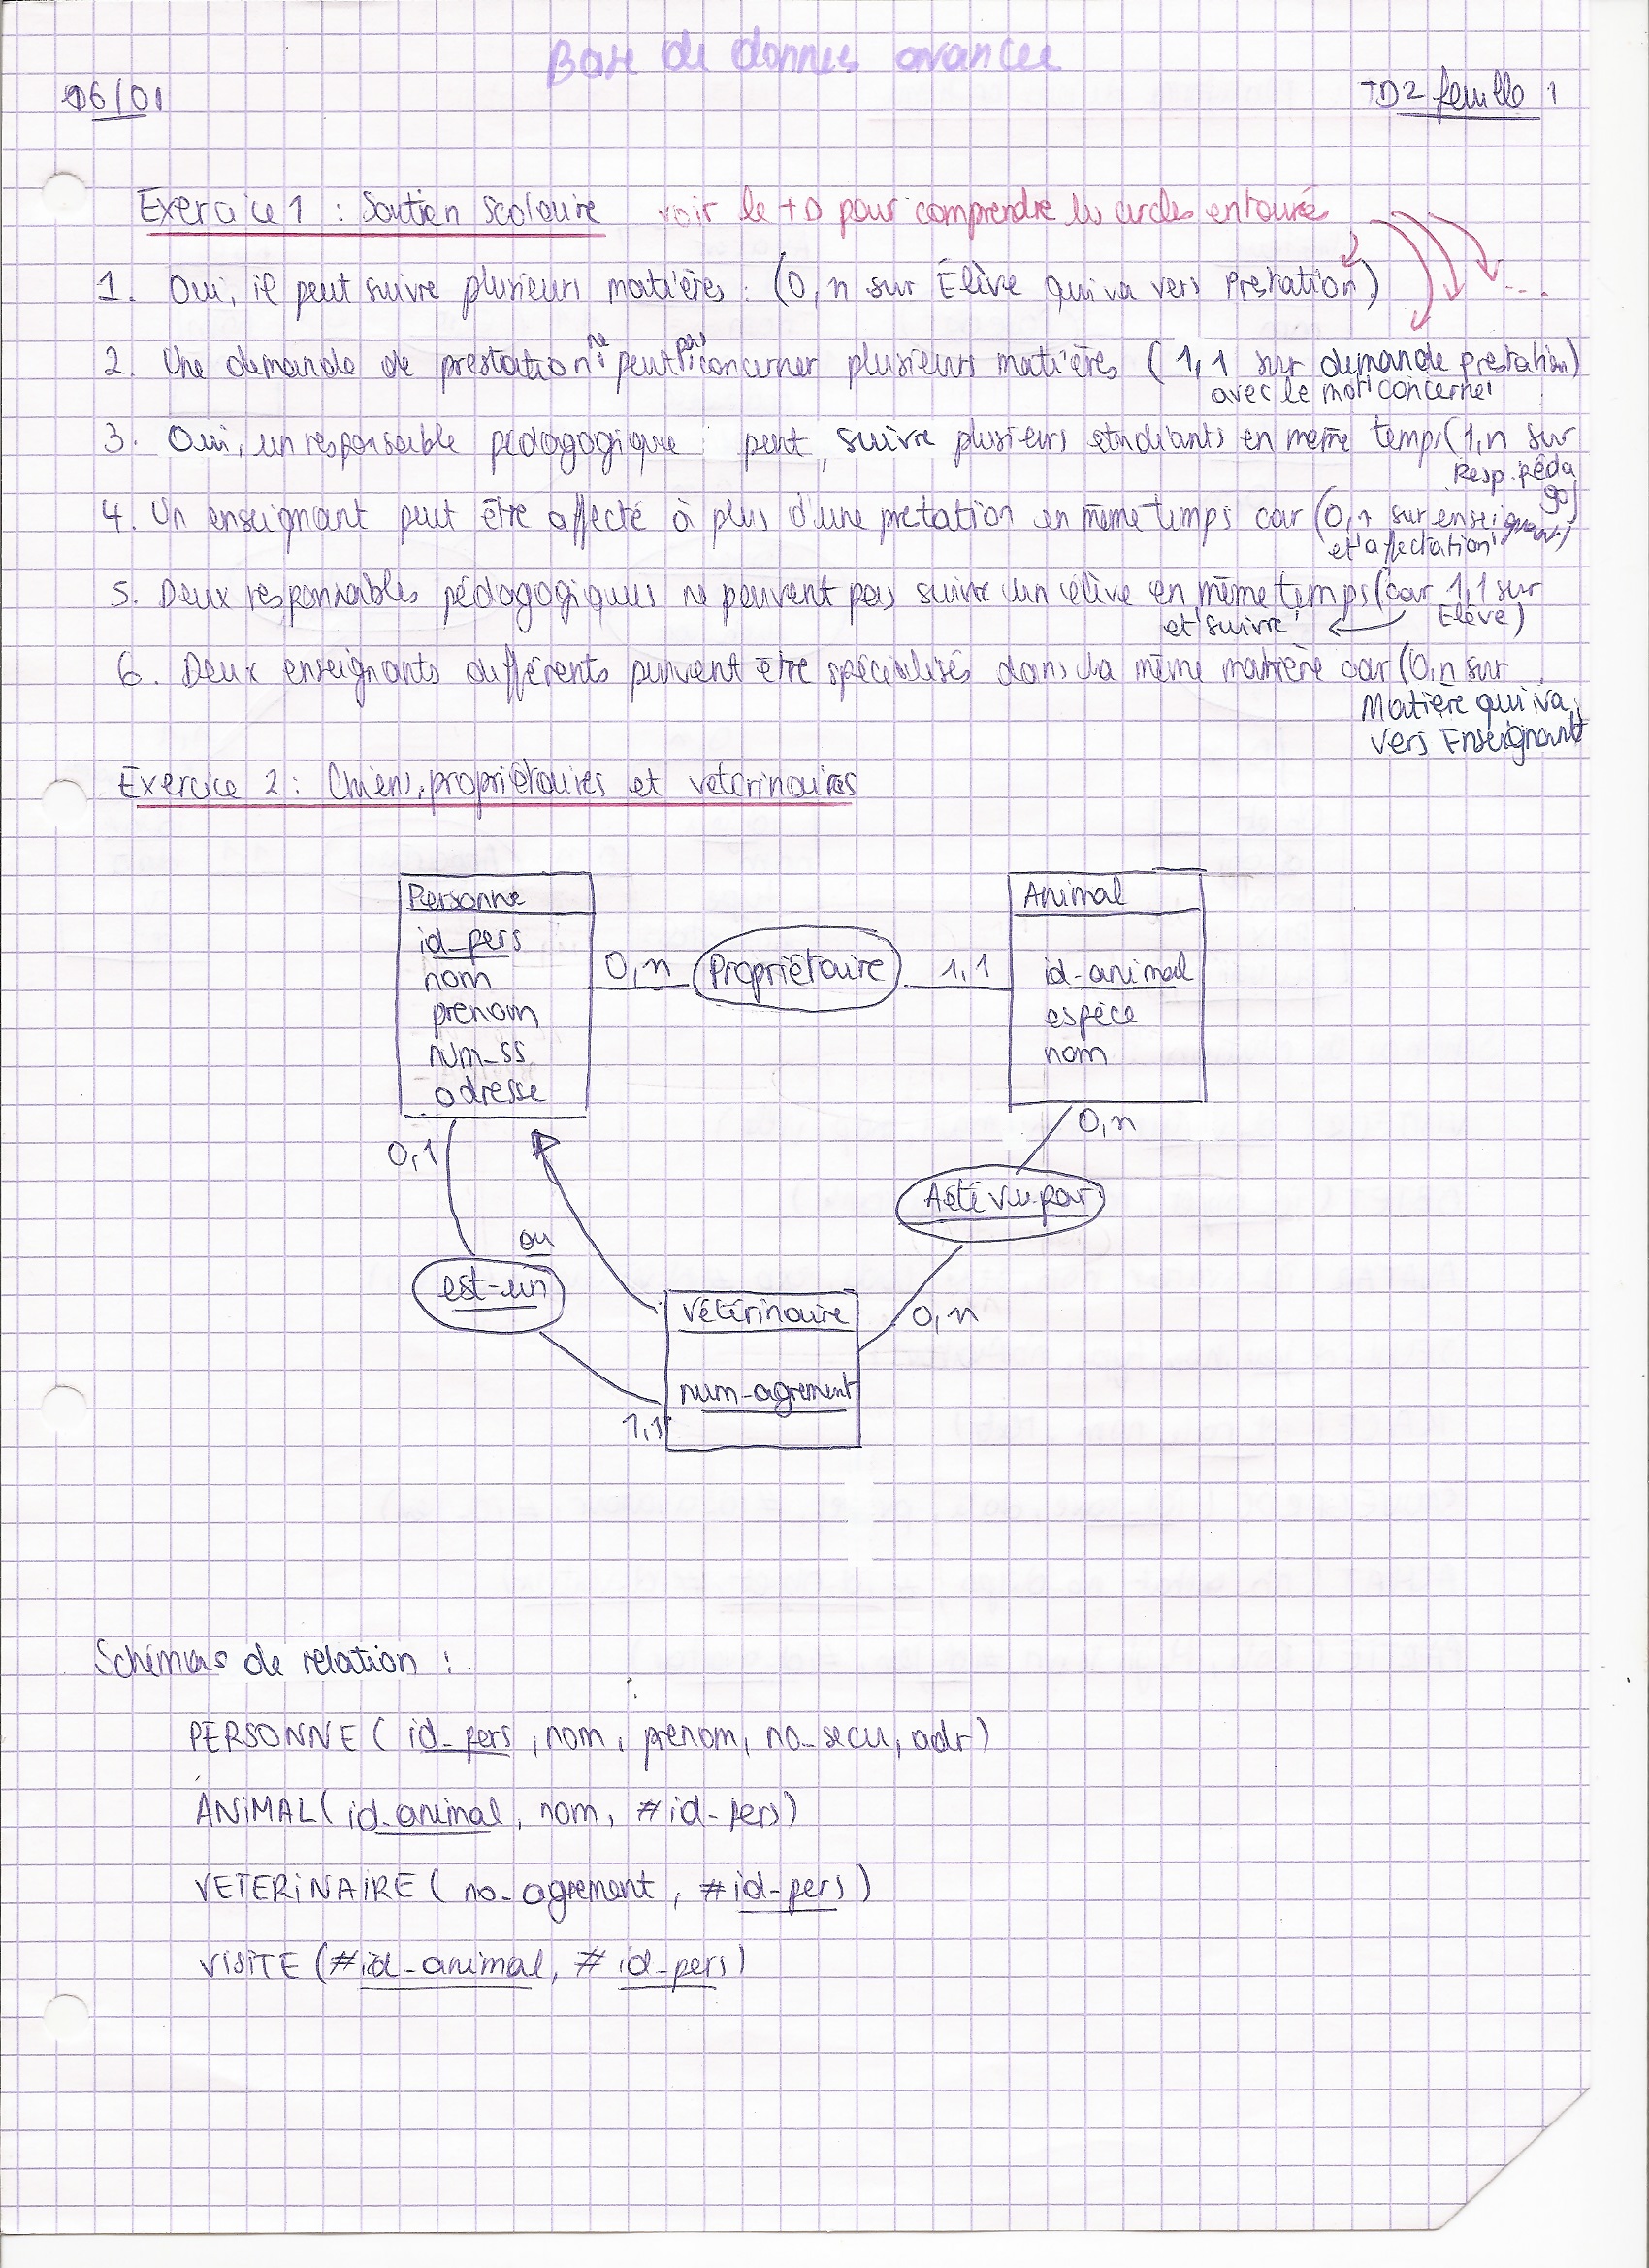 Base de données avancée
06/01
TD2 feuille 1
Exercice 1 : Soutien scolaire voir le TD pour comprendre les cercles entourés
1. Oui, il peut suivre plusieurs matières : (0,n sur Élève qui va vers Prestation)
2. Une demande de prestation ne peut pas concerner plusieurs matières (1,1 sur demande prestation)
avec le mot concerner
3. Oui, un responsable pédagogique peut suivre plusieurs étudiants en même temps (1,n sur
Resp. péda
go)
4. Un enseignant peut être affecté à plus d'une prestation en même temps car (0,n sur enseignant)
et 'affectation'
5. Deux responsables pédagogiques ne peuvent pas suivre un élève en même temps (car 1,1 sur
et 'suivre' Elève)
6. Deux enseignants différents peuvent être spécialisés dans la même matière car (0,n sur
Matière qui va
vers Enseignant
Exercice 2 : Chiens, propriétaires et vétérinaires
Personne
id_pers
nom
prenom
num_ss
adresse
0,n
Propriétaire
1,1
Animal
id-animal
espèce
nom
0,1
0,n
A été vu par
ou
est-un
Vétérinaire
0,n
num-agrement
1,1
Schémas de relation :
PERSONNE ( id_pers , nom, prenom, no_secu, adr)
ANIMAL( id_animal, nom, #id-pers)
VETERINAIRE ( no_agrement, #id-pers )
VISITE (#id-animal, # id_pers)